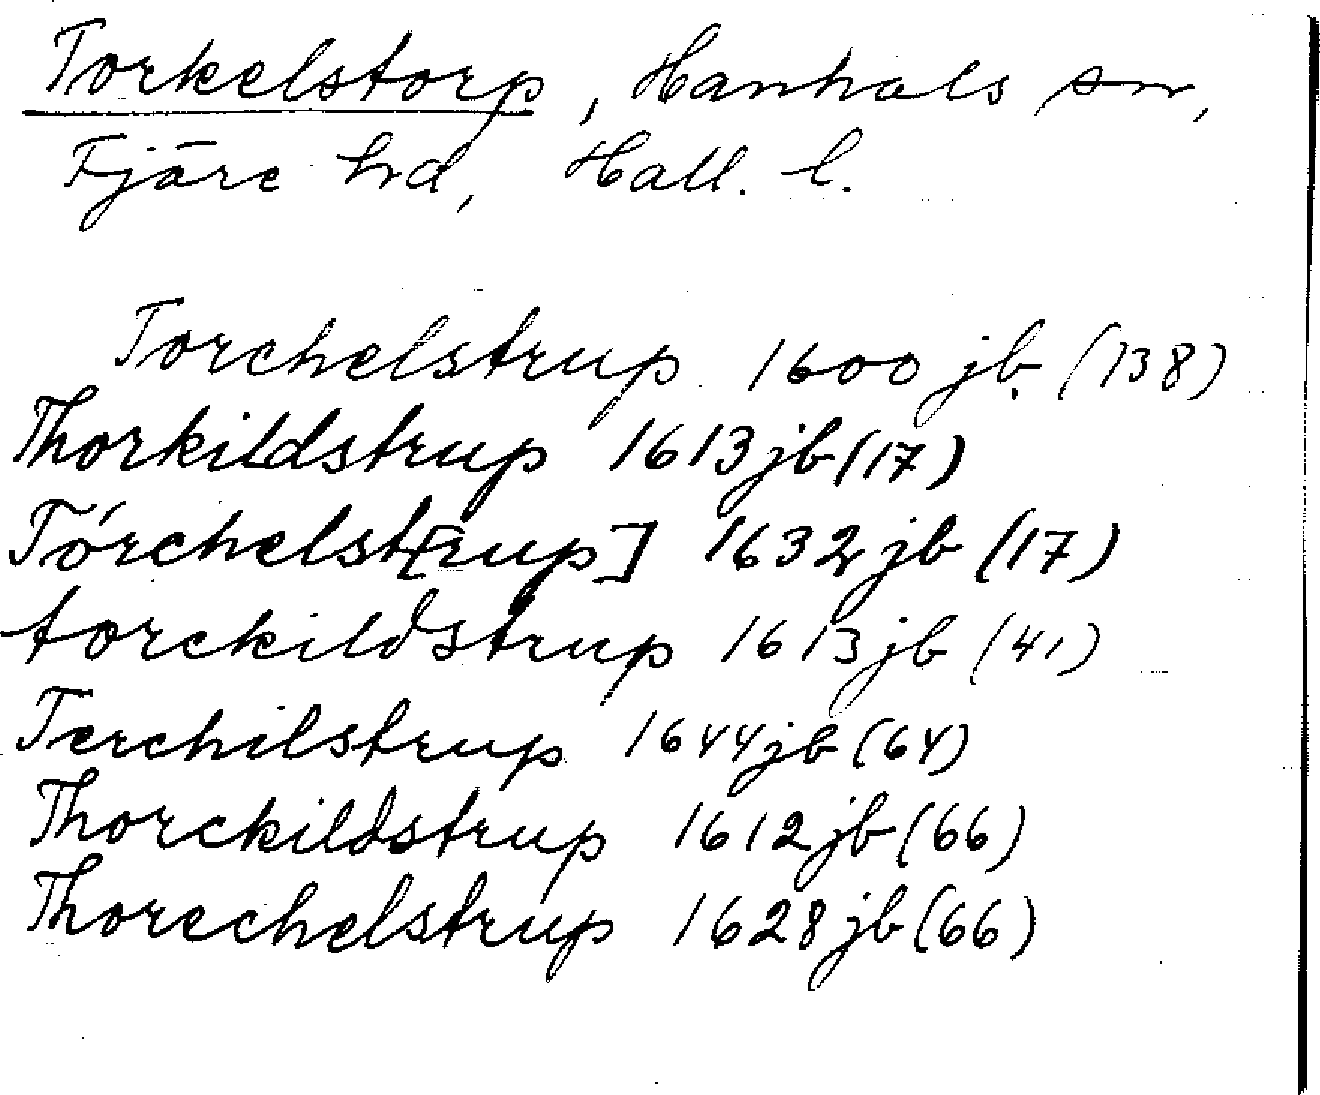 Torkelstorp, Hanhals sn,
Fjäre hd, Hall. l.
Torchelstrup 1600 jb. (138)
Thorkildstrup 1613 jb (17)
Tórchelst[rup] 1632 jb (17)
torckildstrup 1613 jb (41)
Terchilstrup 1644 jb (64)
Thorckildstrup 1612 jb (66)
Thorechelstrup 1628 jb (66)